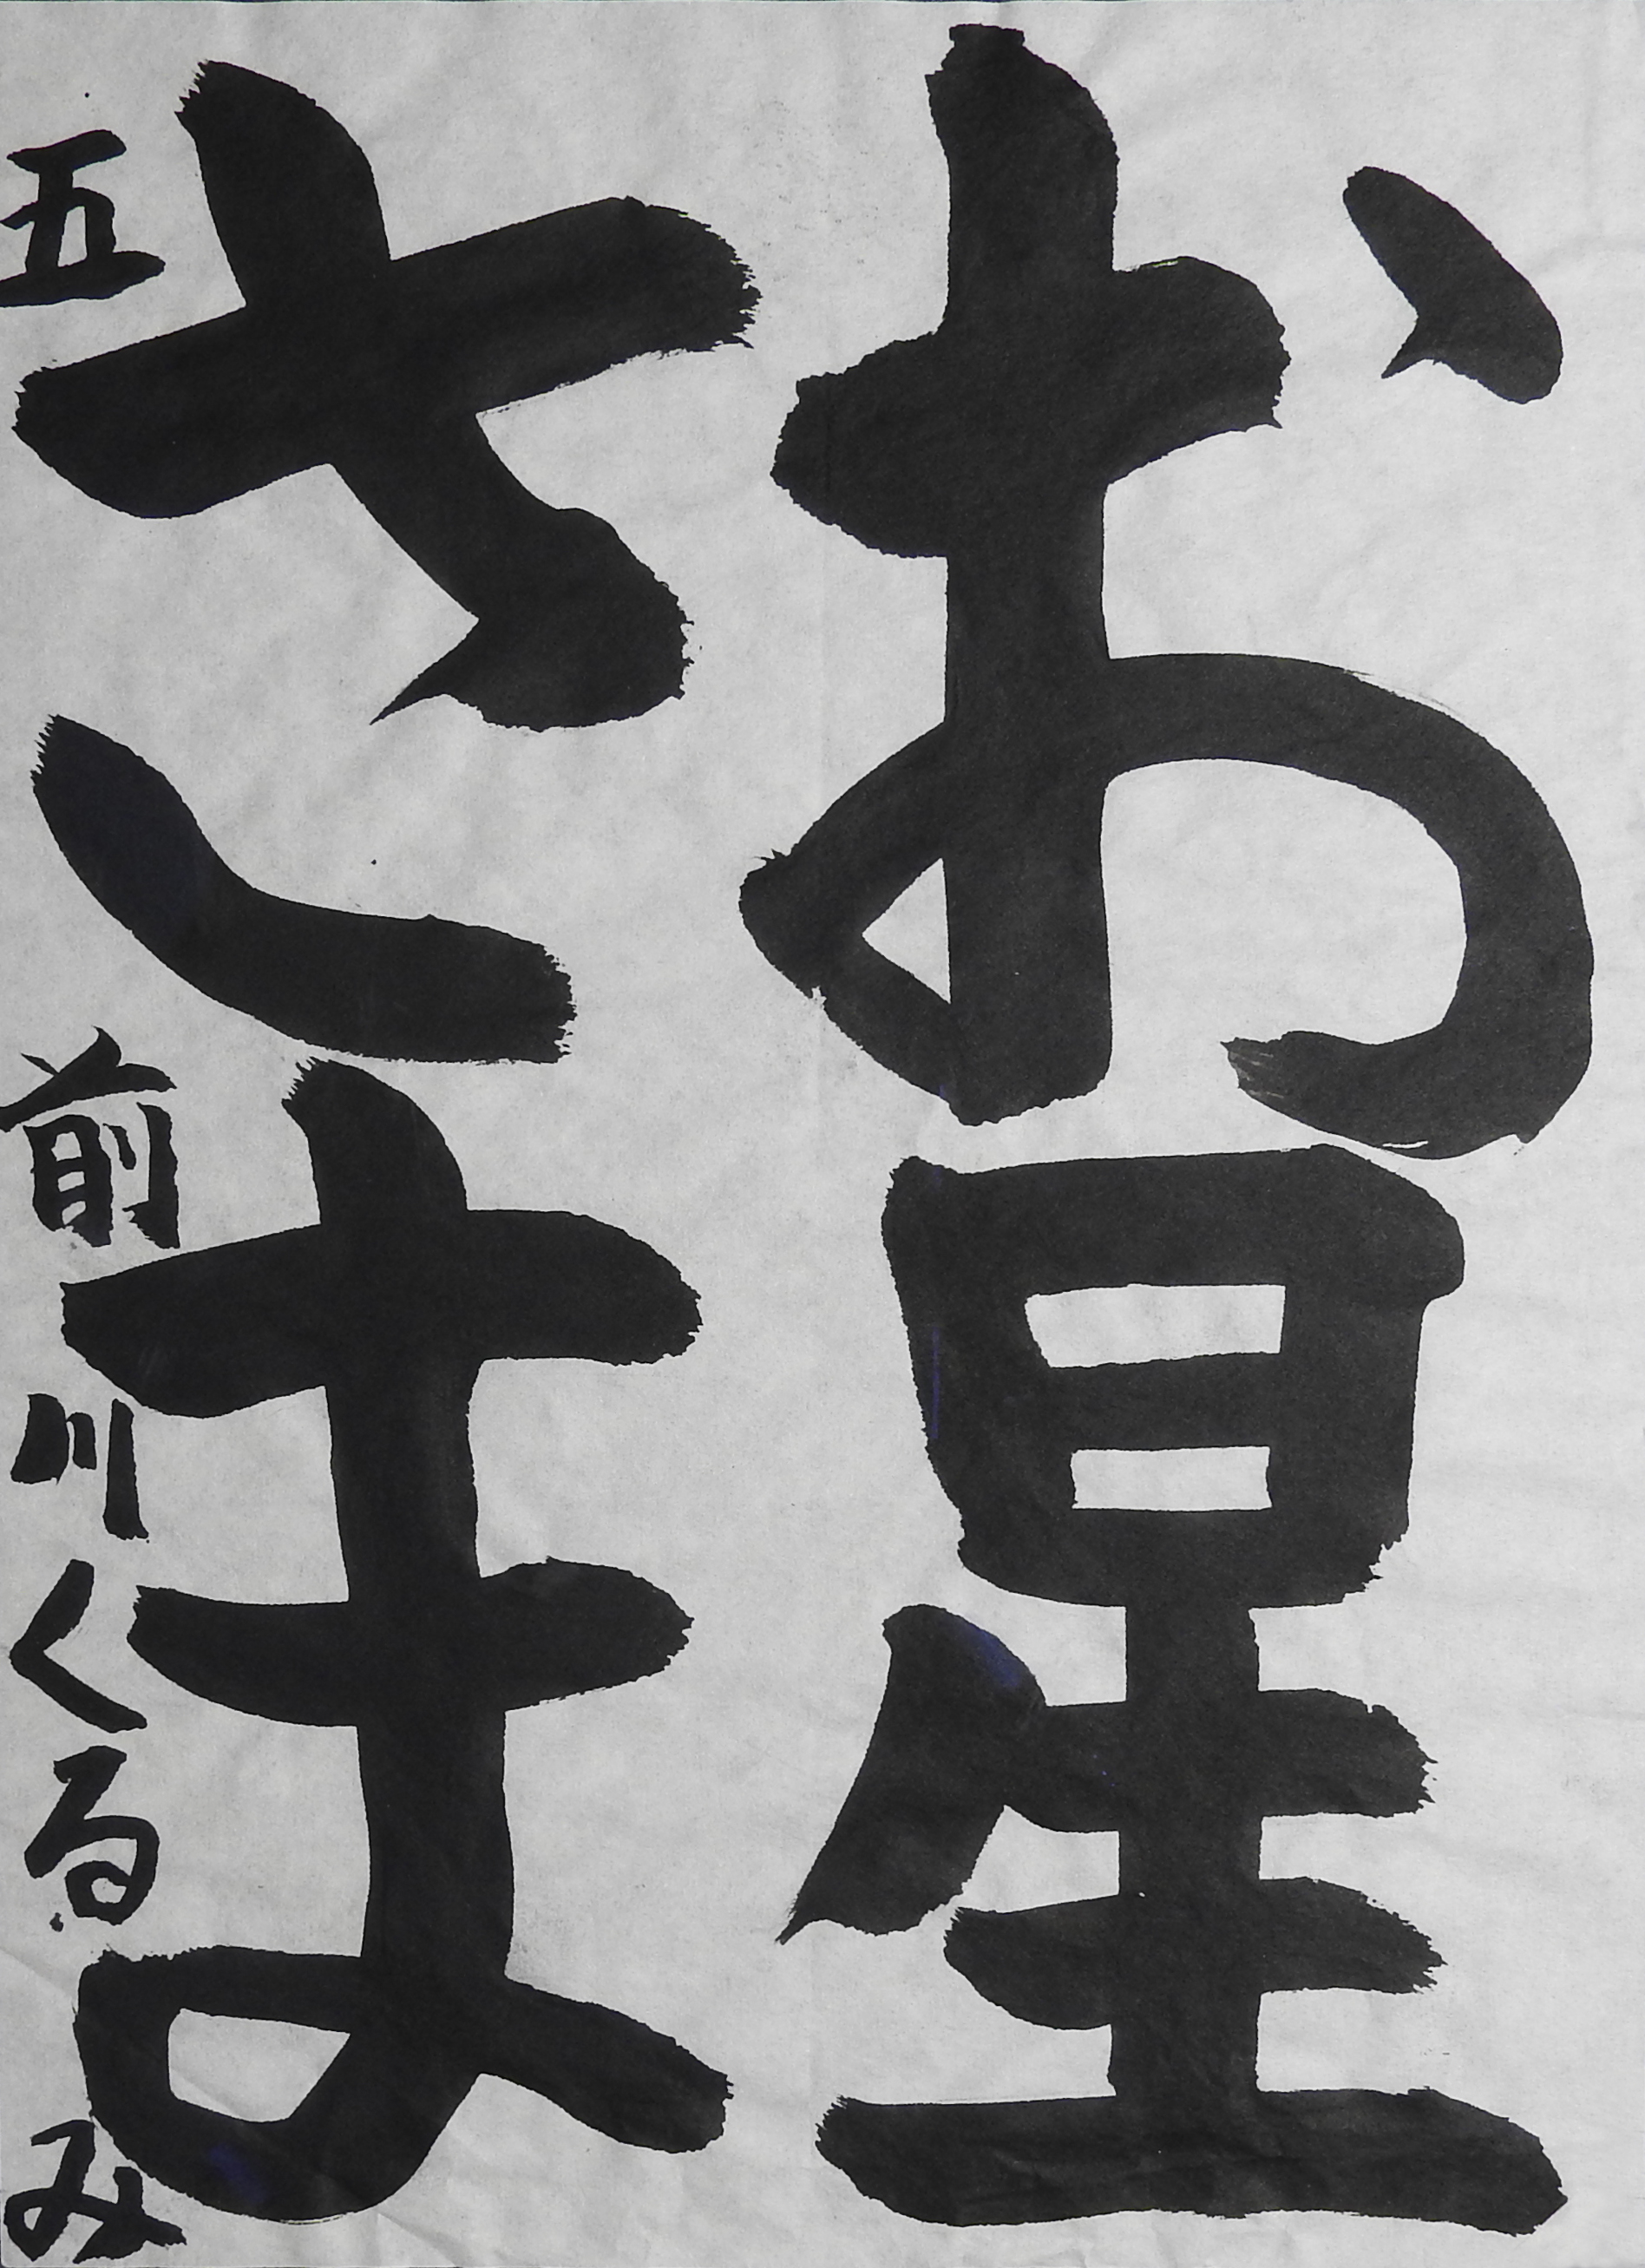 お星
さま
五 前川くるみ